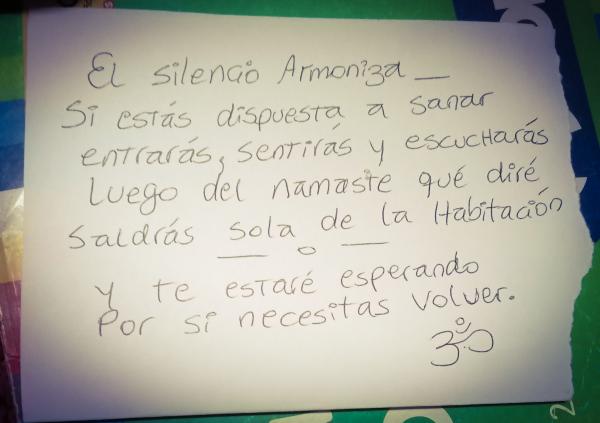 El silencio Armoniza _
Si estás dispuesta a sanar
entrarás, sentirás y escucharás
Luego del namaste qué diré
saldrás sola de la Habitación
— o —
y te estaré esperando
Por si necesitas volver.
ॐ
2